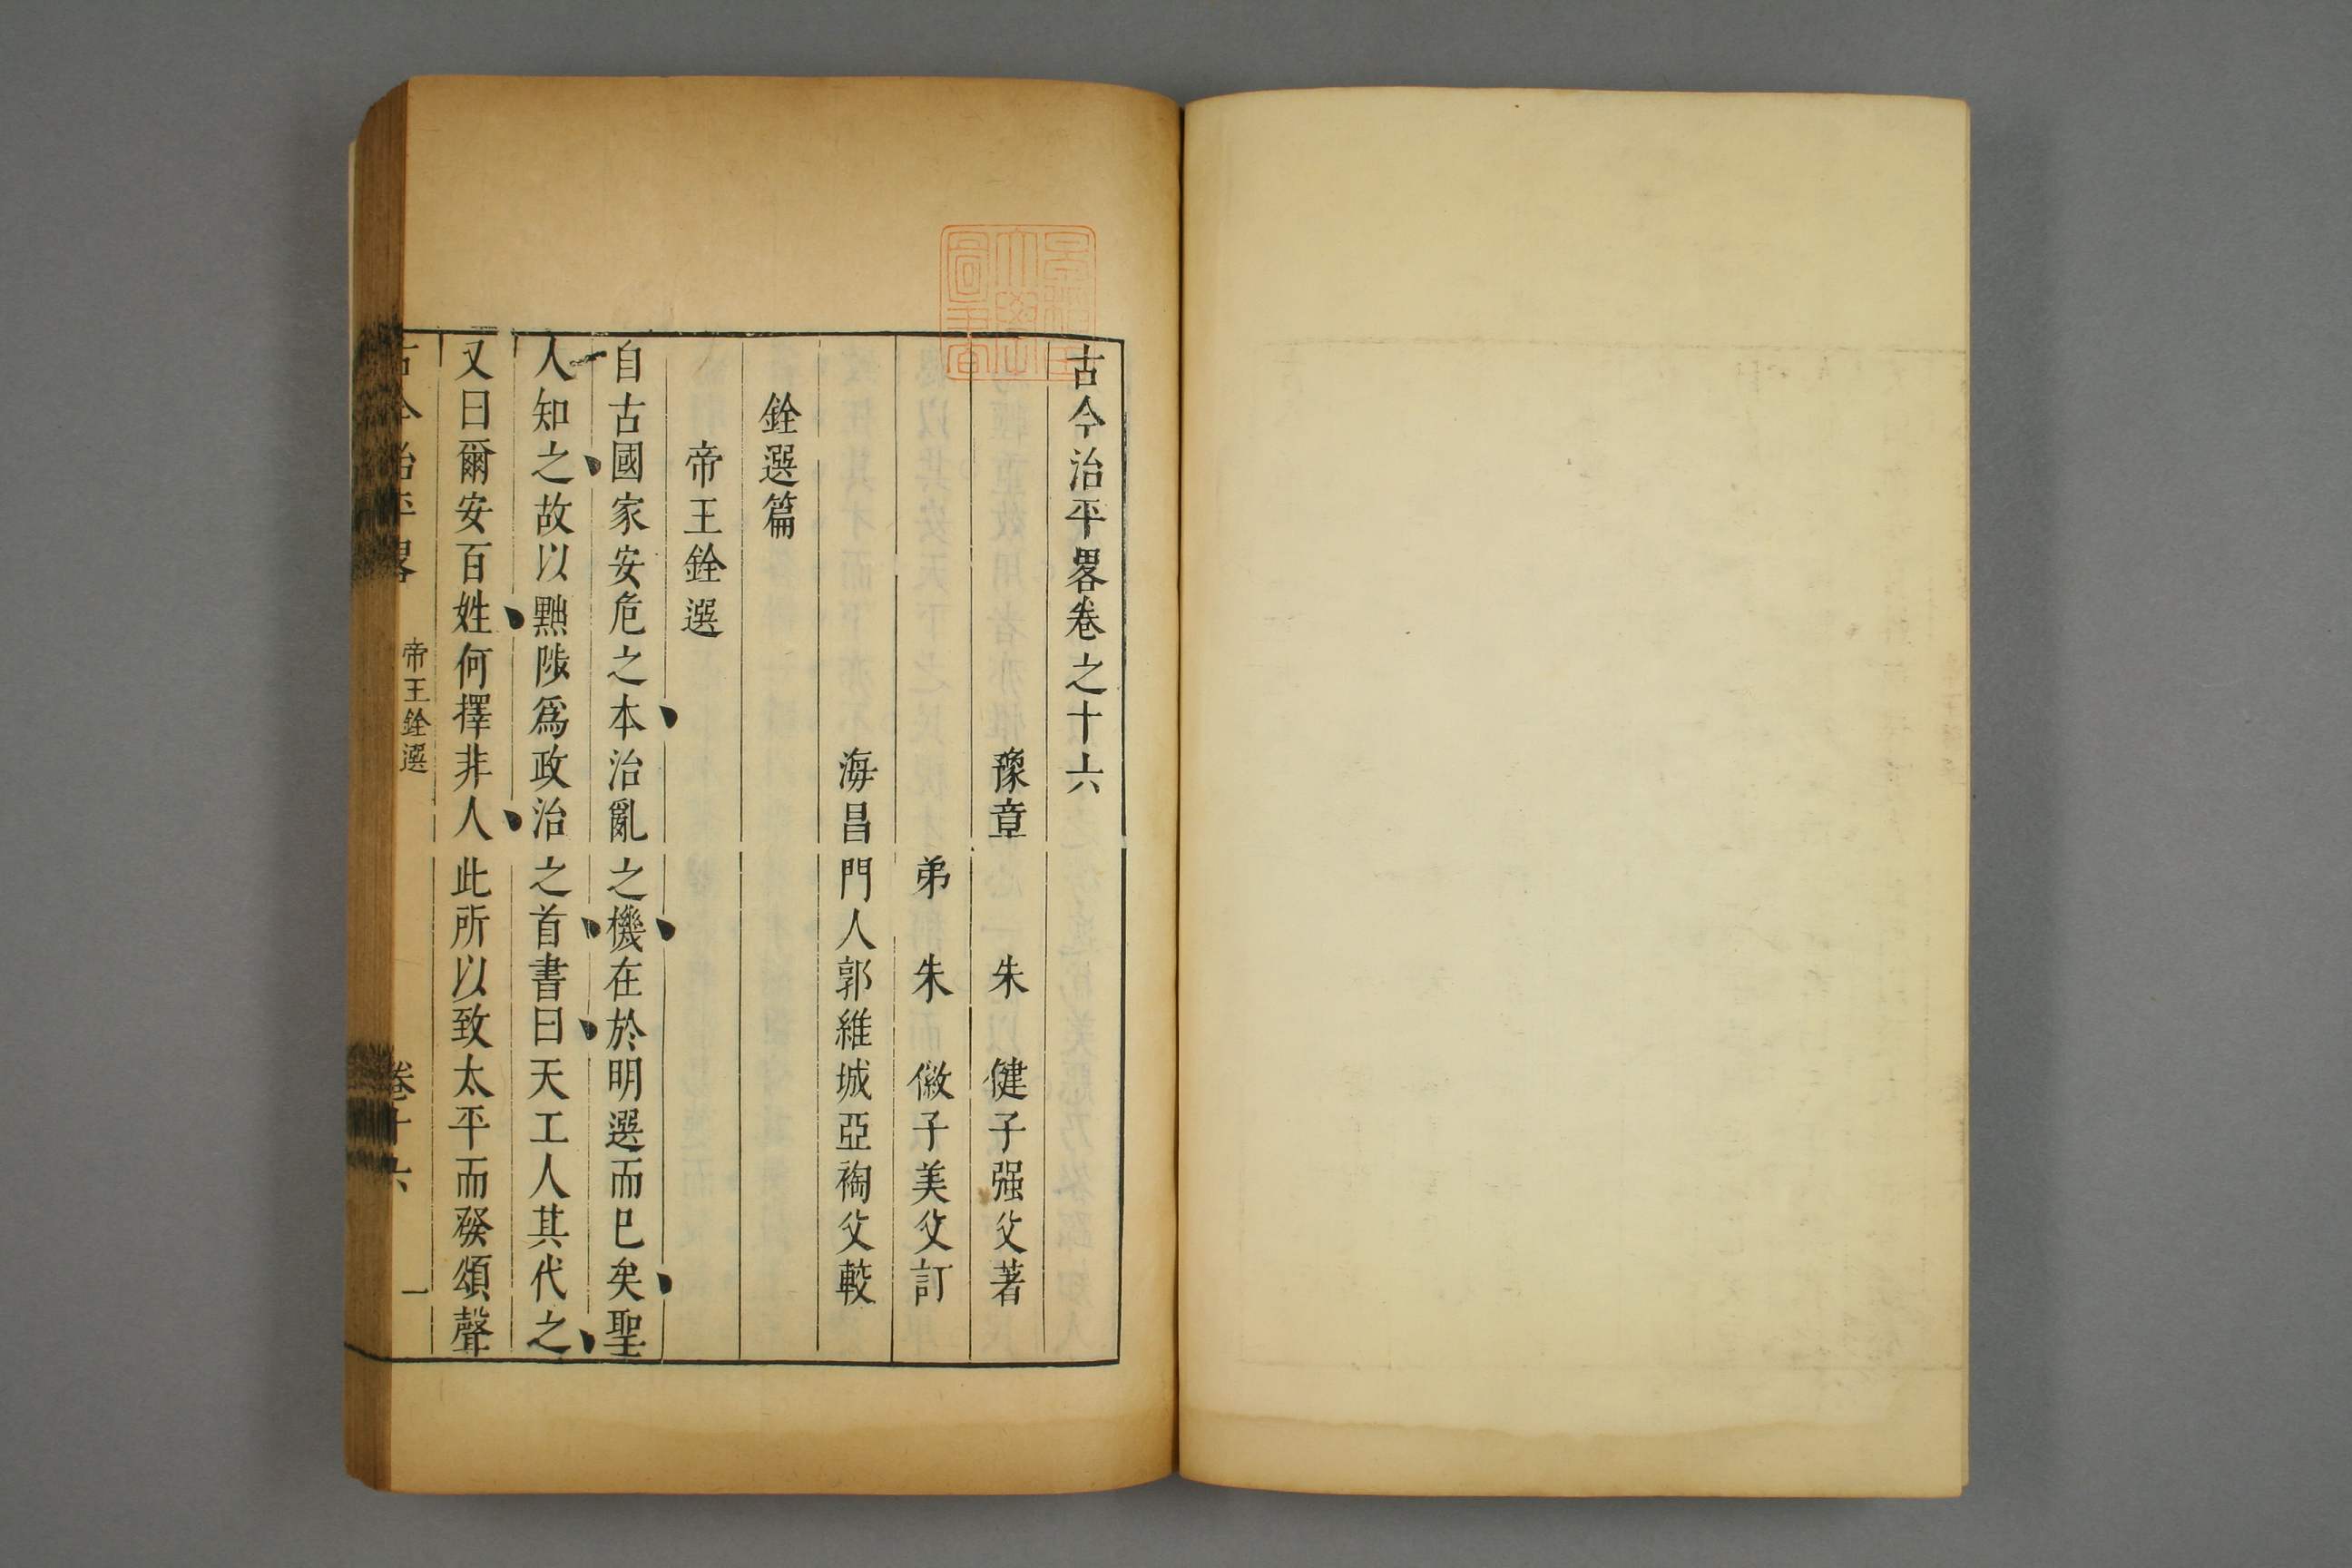 古今治平畧卷之十六
豫章 朱 健子强父著
弟 朱 徽子美父訂
海昌門人郭維城亞裪父較
銓選篇
帝王銓選
自古國家安危之本治亂之機在於明選而巳矣聖
人知之故以黜陟爲政治之首書曰天工人其代之
又曰爾安百姓何擇非人此所以致太平而發頌聲
古今治平畧 帝王銓選 卷十六 一